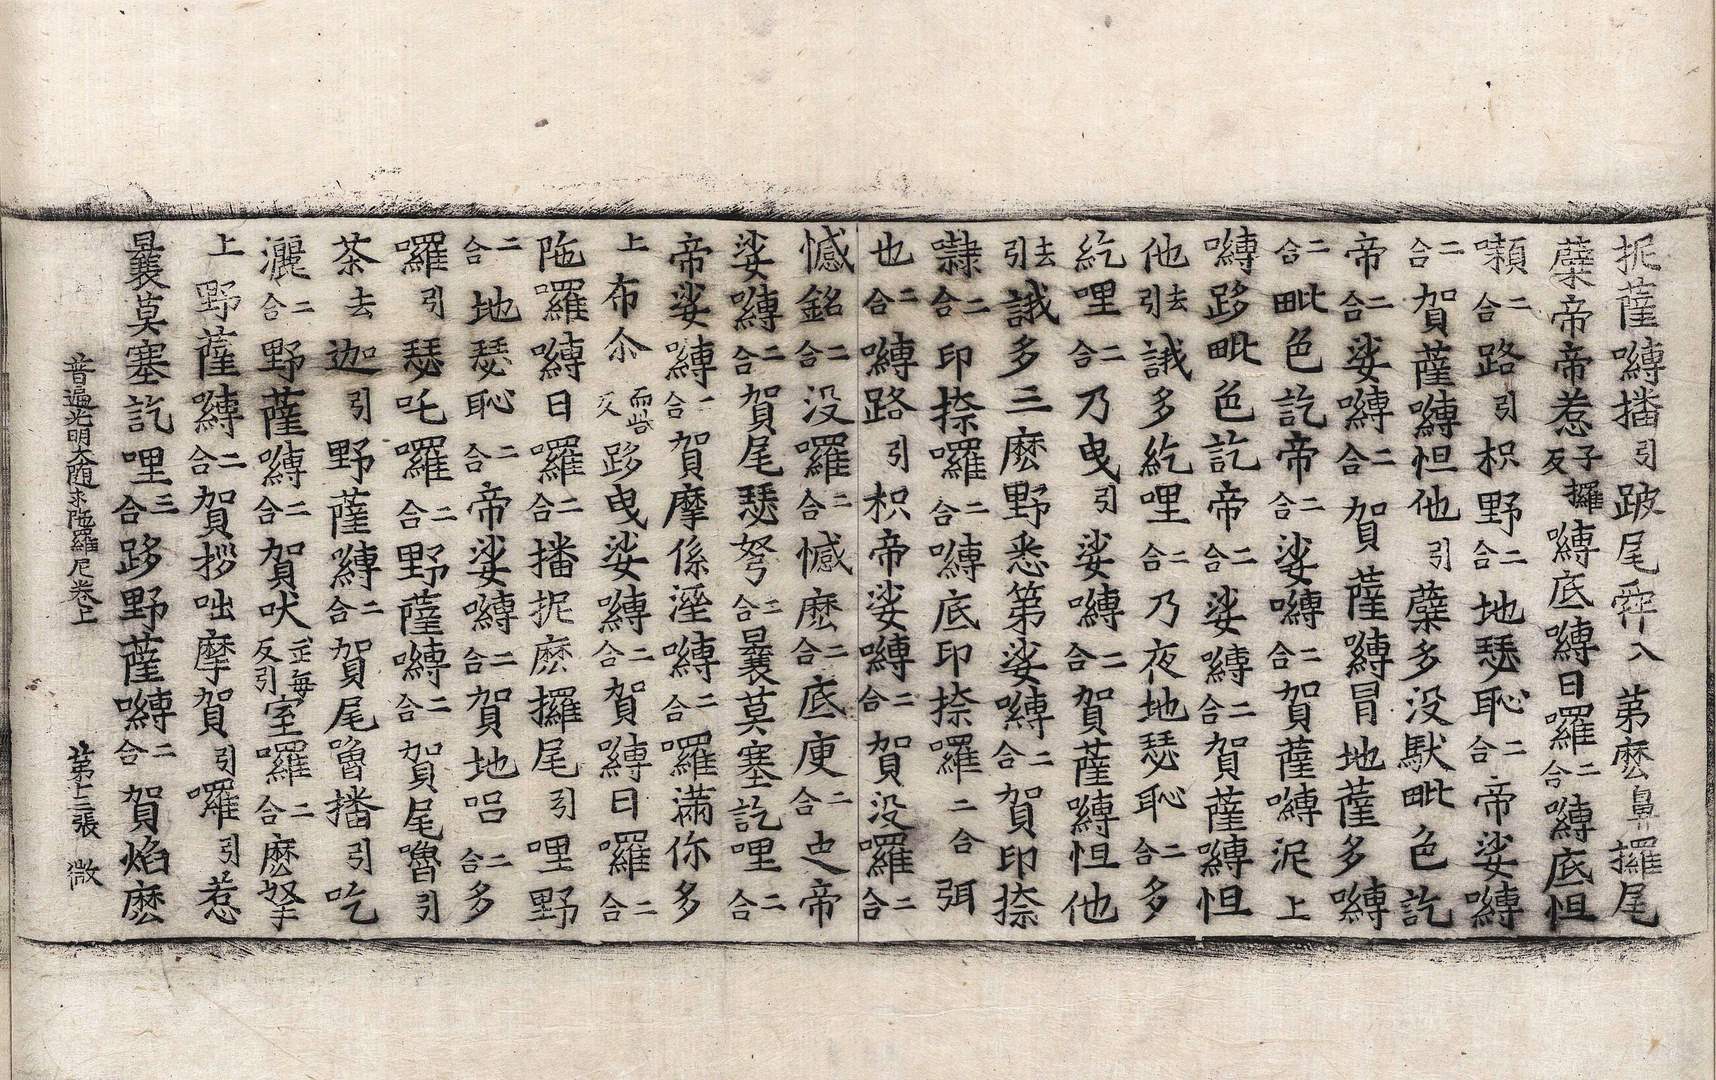 抳薩嚩播引跛尾𤙖入苐麽鼻攞尾
蘖帝帝惹子攞反嚩底嚩日囉二合嚩底怛
嚬二合路引枳野二合地瑟恥二合帝娑嚩
二合賀薩嚩怛他引蘖多没馱毗色訖
帝二合娑嚩二合賀薩嚩冒地薩多嚩
二合毗色訖帝二合娑嚩二合賀薩嚩泥上
嚩跢毗色訖帝二合娑嚩二合賀薩嚩怛
他去引誐多紇哩二合乃夜地瑟恥二合多
紇哩二合乃曳引娑嚩二合賀薩嚩怛他
去引誐多三麽野悉第娑嚩二合賀印捺
隸二合印捺囉二合嚩底印捺囉二合弭
也二合嚩路引枳帝娑嚩二合賀没囉二合
憾銘二合没囉二合憾麽二合底庾二合史帝
娑嚩二合賀尾瑟弩二合曩莫塞訖哩二合
帝娑嚩二合賀摩係濕嚩二合囉滿你多
上布尒而呰反跢曳娑嚩二合賀嚩日囉二合
陁囉嚩日囉二合播抳麽攞尾引哩野
二合地瑟恥二合帝娑嚩二合賀地呂二合多
囉引瑟吒囉二合野薩嚩二合賀尾嚕引
荼去迦引野薩嚩二合賀尾嚕播引吃
灑二合野薩嚩二合賀吠武每反引室囉二合麽拏
上野薩嚩二合賀拶咄摩賀引囉引惹
曩莫塞訖哩三合跢野薩嚩二合賀焰麽
普遍光明大随求陁羅尼卷上 苐十二張 微